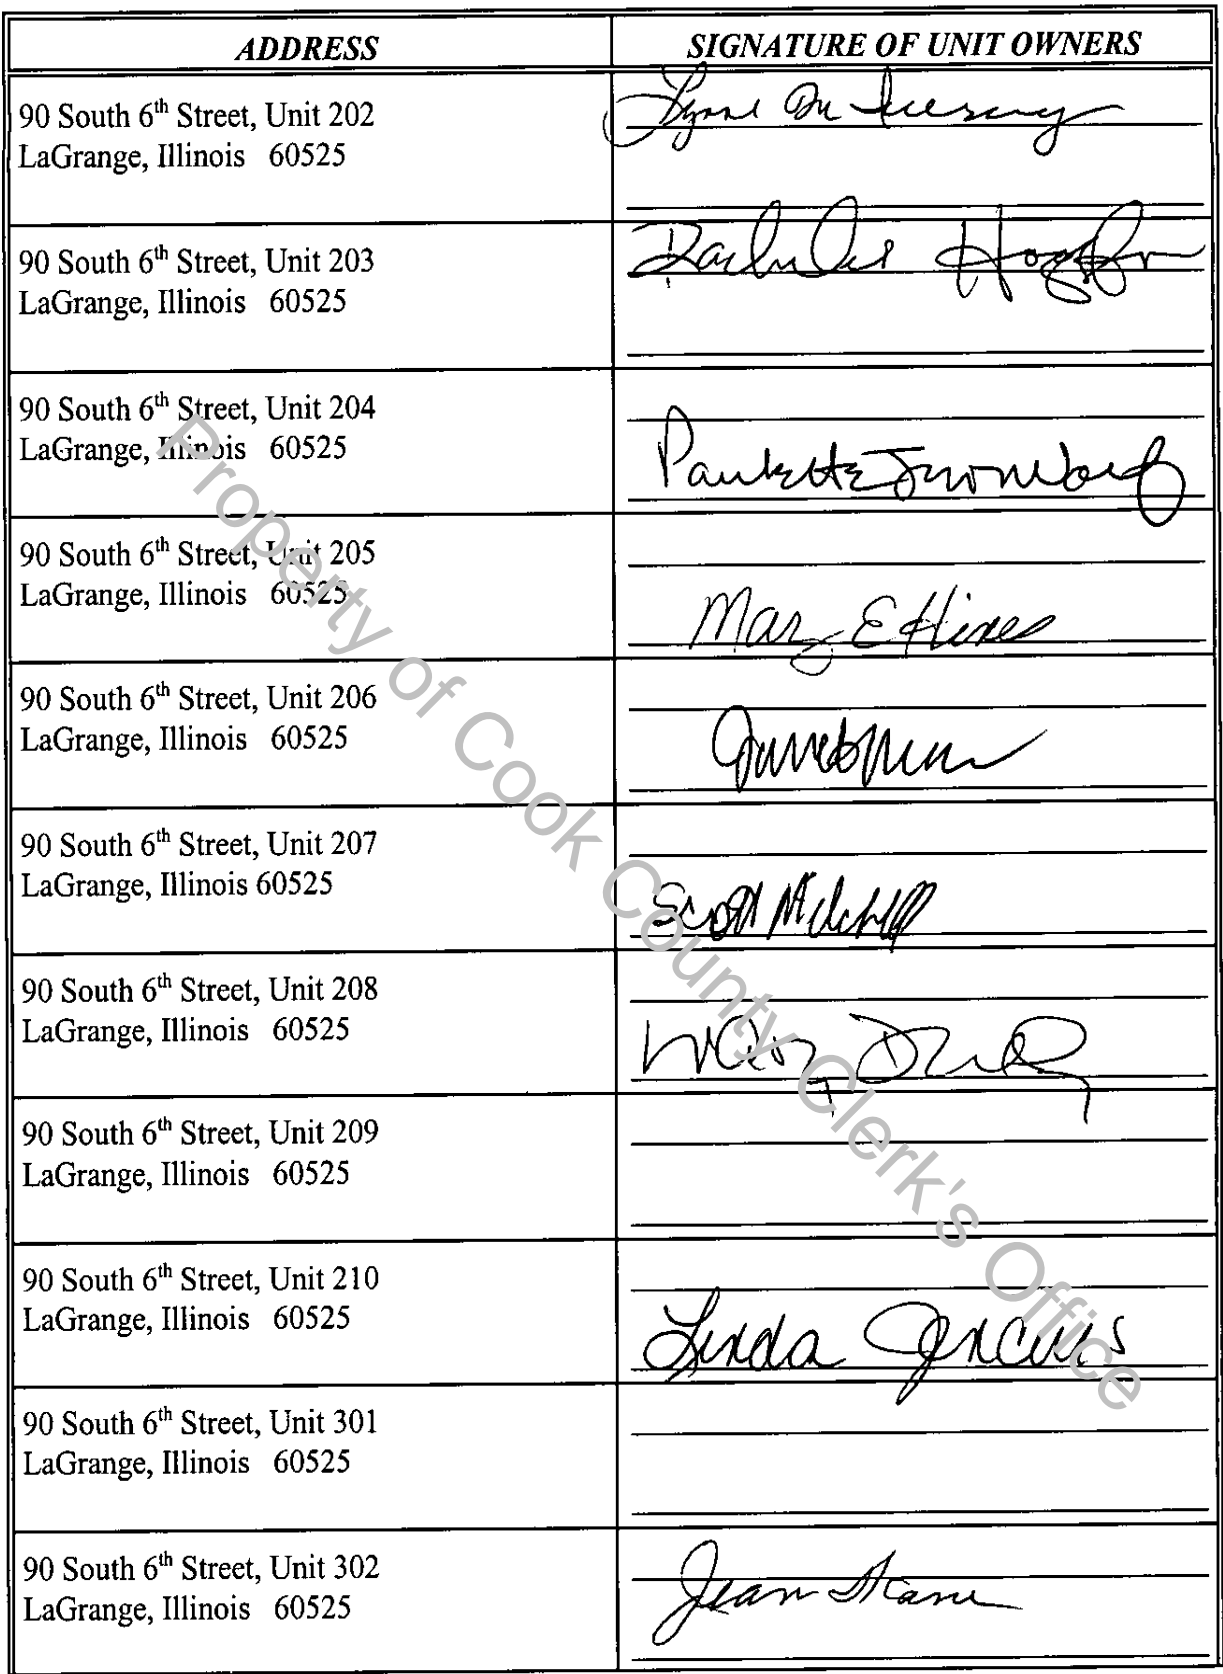 ADDRESS SIGNATURE OF UNIT OWNERS
90 South 6th Street, Unit 202
LaGrange, Illinois 60525
Lynne
90 South 6th Street, Unit 203
LaGrange, Illinois 60525
90 South 6th Street, Unit 204
LaGrange, Illinois 60525
Paulette
90 South 6th Street, Unit 205
LaGrange, Illinois 60525
Mary E Hines
90 South 6th Street, Unit 206
LaGrange, Illinois 60525
90 South 6th Street, Unit 207
LaGrange, Illinois 60525
Scott
90 South 6th Street, Unit 208
LaGrange, Illinois 60525
90 South 6th Street, Unit 209
LaGrange, Illinois 60525
90 South 6th Street, Unit 210
LaGrange, Illinois 60525
Linda
90 South 6th Street, Unit 301
LaGrange, Illinois 60525
90 South 6th Street, Unit 302
LaGrange, Illinois 60525
Jean
Property of Cook County Clerk's Office